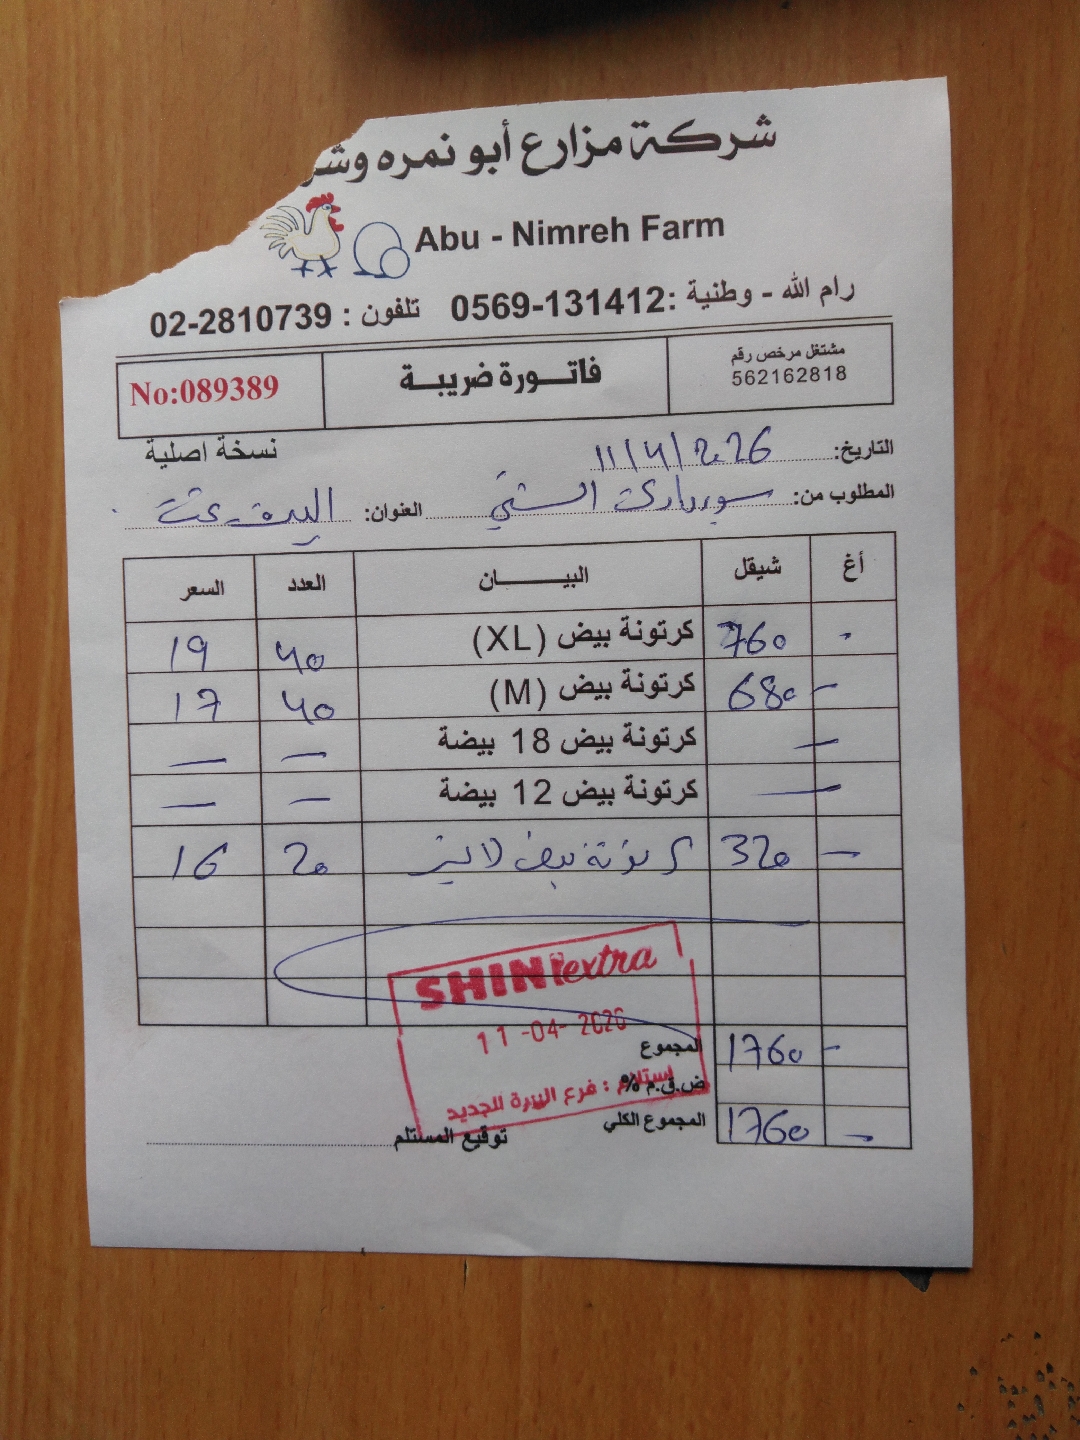 شركة مزارع أبو نمره وشر
Abu - Nimreh Farm
رام الله - وطنية : 0569-131412 تلفون : 02-2810739
مشتغل مرخص رقم
562162818
فاتـــورة ضريبــة
No:089389
نسخة اصلية
التاريخ: 11/4/2026
المطلوب من: العنوان:
أغ شيقل البيـــــان العدد السعر
760 كرتونة بيض (XL) 40 19
680 - كرتونة بيض (M) 40 17
— كرتونة بيض 18 بيضة — —
— كرتونة بيض 12 بيضة — —
320 - كرتونة بيض 20 16
SHINI extra
11-04-2026
استلام : فرع البيرة الجديد
المجموع 1760 -
ض.ق.م %
المجموع الكلي 1760 -
توقيع المستلم